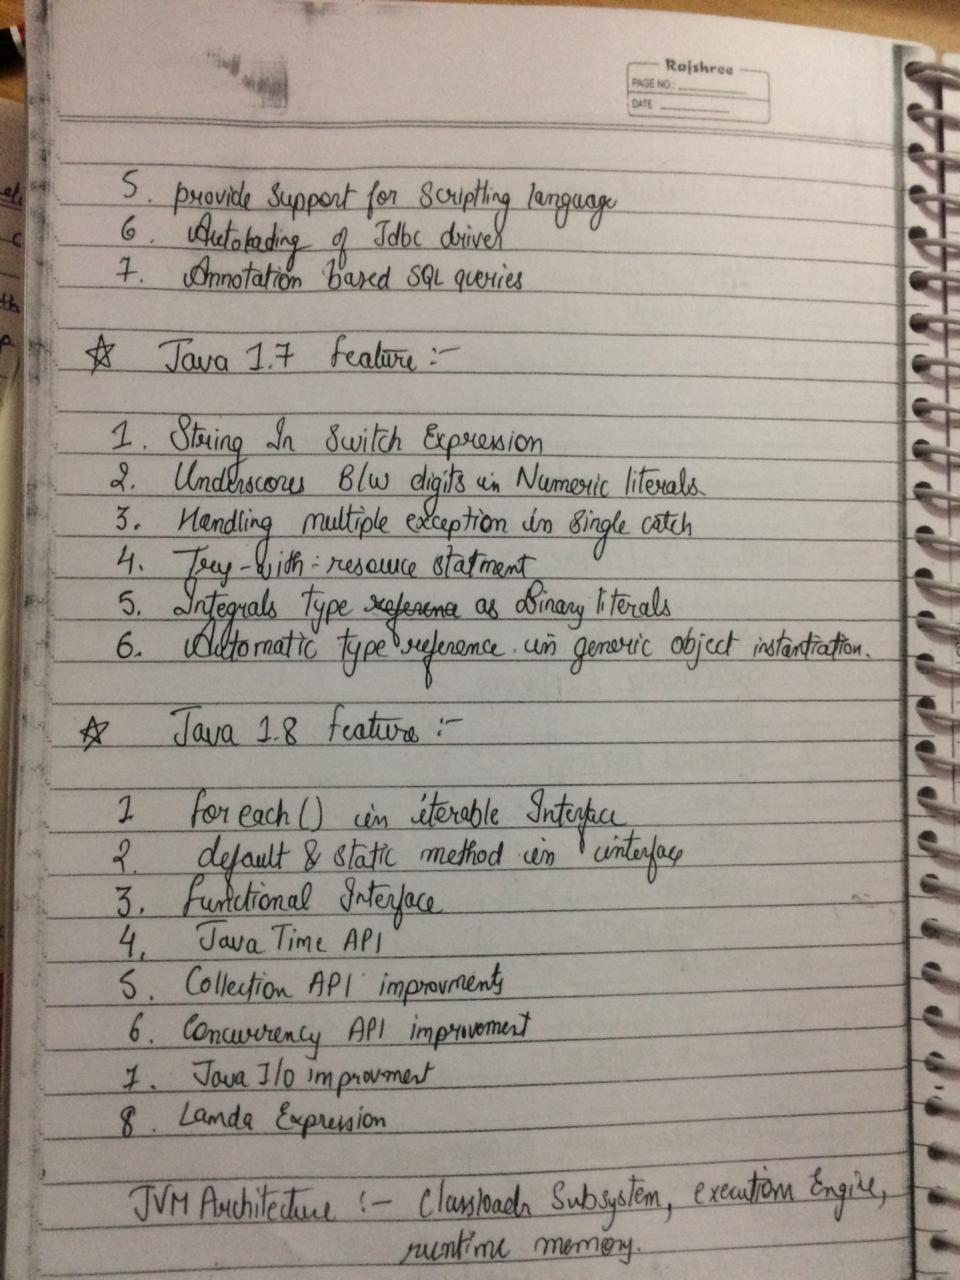 Rajshree
PAGE NO:
DATE
5. provide support for Scriptling language
6. Autoloading of Jdbc driver
7. Annotation based SQL queries
☆ Java 1.7 feature :-
1. String In Switch Expression
2. Underscores B/w digits in Numeric literals
3. Handling multiple exception in single catch
4. Try-with-resource statment
5. Integrals type as Binary literals
6. Automatic type reference in generic object instantiation.
☆ Java 1.8 feature :-
1 for each () in iterable Interface
2. default & static method in interface
3. functional Interface
4. Java Time API
5. Collection API improvments
6. Concurrency API improvement
7. Java I/O improvment
8. Lamda Expression
JVM Architecture :- Classloader Subsystem, execution Engine,
runtime memory.